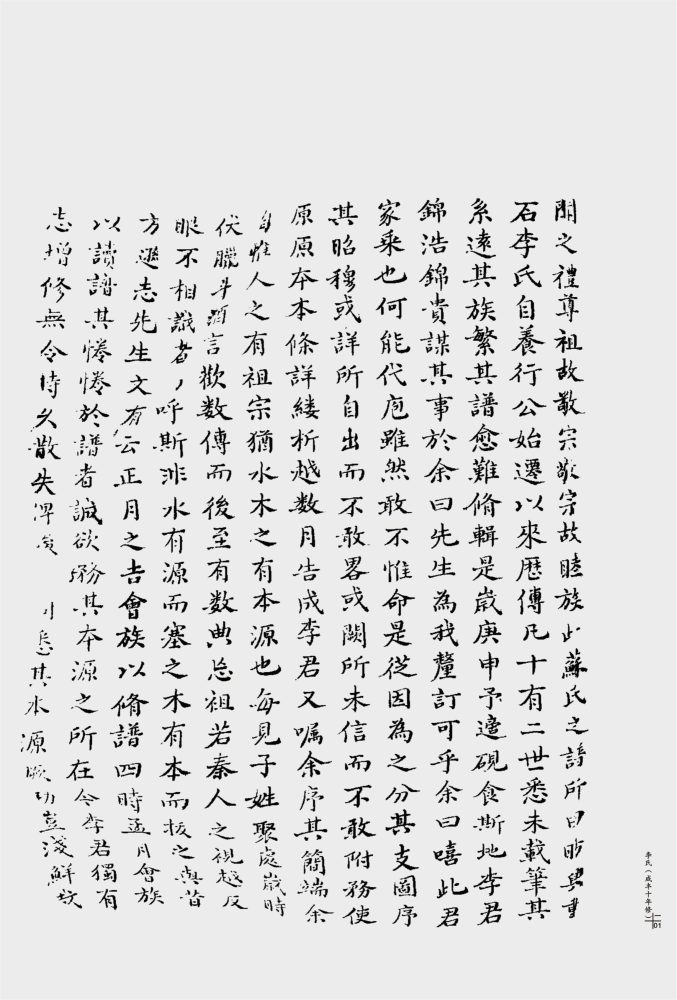 聞之禮尊祖故敬宗敬宗故睦族此蘇氏之譜所由昉與重
石李氏自養行公始遷以來歷傳凡十有二世悉未載筆其
系遠其族繁其譜愈難脩輯是歲庚申予適硯食斯地李君
錦浩錦貴謀其事於余曰先生為我釐訂可乎余曰嘻此君
家乘也何能代庖雖然敢不惟命是從因為之分其支圖序
其昭穆或詳所自出而不敢畧或闕所未信而不敢附務使
原原本本條詳縷析越数月告成李君又嘱余序其簡端余
自惟人之有祖宗猶水木之有本源也每見子姓聚處歲時
伏臘斗酒言歡数傳而後至有数典忘祖若秦人之視越反
眼不相識者，呼斯非水有源而塞之木有本而拔之與昔
方遜志先生文有云正月之吉會族以脩譜四時孟月會族
以讀譜其惓惓於譜者誠欲務其本源之所在今李君獨有
志增修無令時久散失俾後 忘其本源厥功豈淺鮮哉
李氏（咸丰十年修）
二01